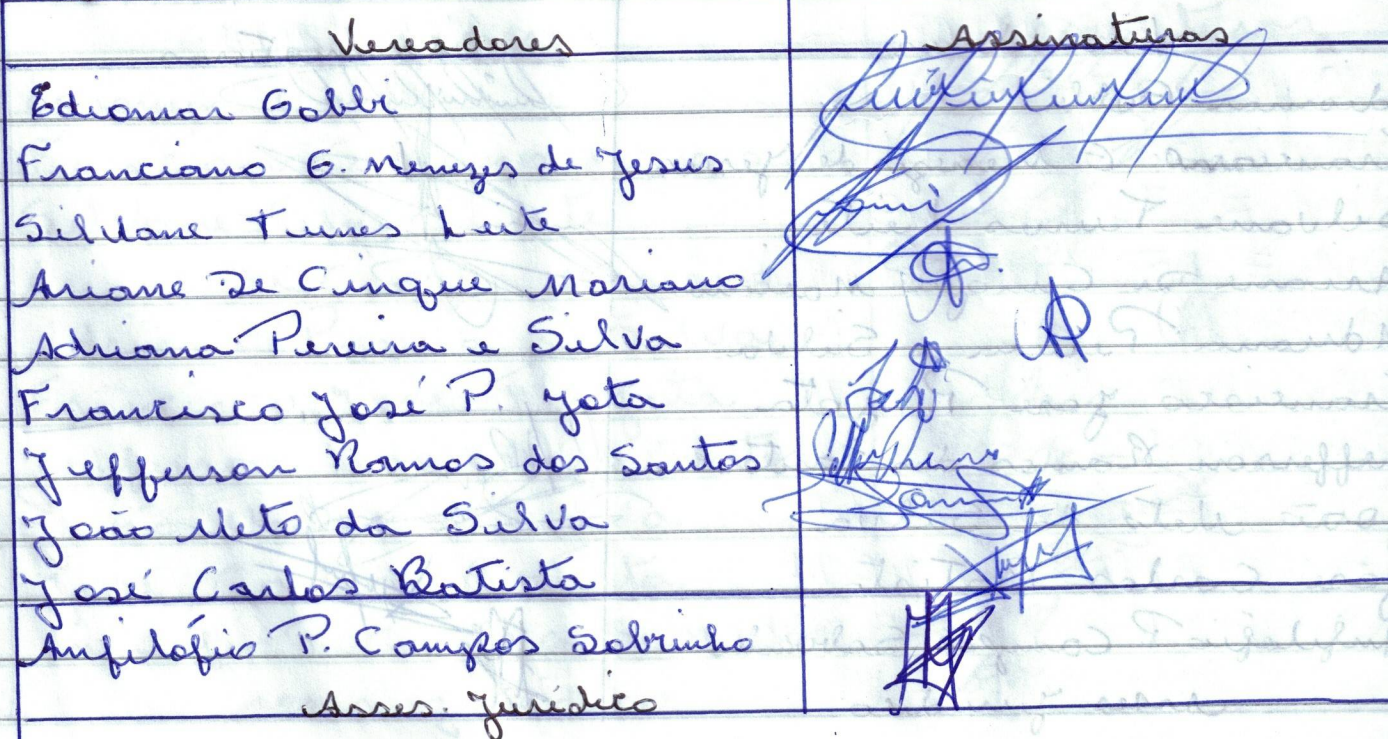 Vereadores Assinaturas
Ediomar Gobbi
Franciano G. Menezes de Jesus
Silvane Tunes Leite
Ariane De Cinque Mariano
Adriana Pereira e Silva
Francisco José P. Jota
Jefferson Ramos dos Santos
João Neto da Silva
José Carlos Batista
Anfilófio P. Campos Sobrinho
Asses. Jurídico